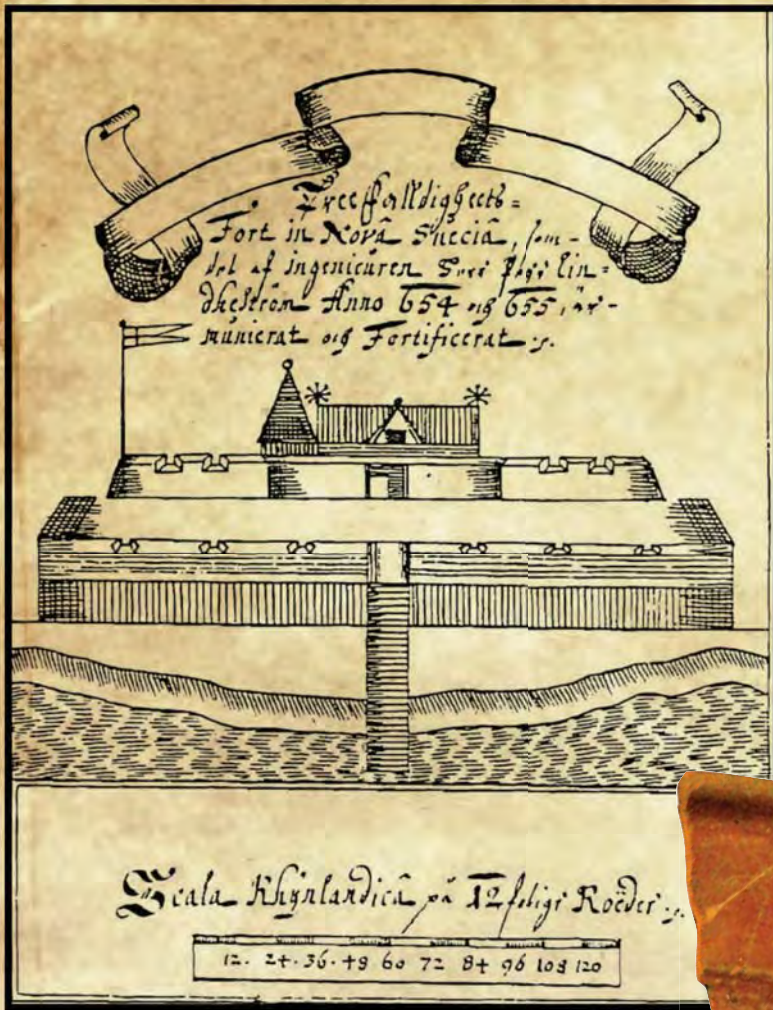 Treefalldigheets=
Fort in Nova Sueciâ, som-
del af ingenieuren Lin=
dheström Anno 654 og 655,
munierat og Fortificerat
Scala Rhÿnlandica på 12 Roëder
12. 24. 36. 48 60 72 84 96 108 120